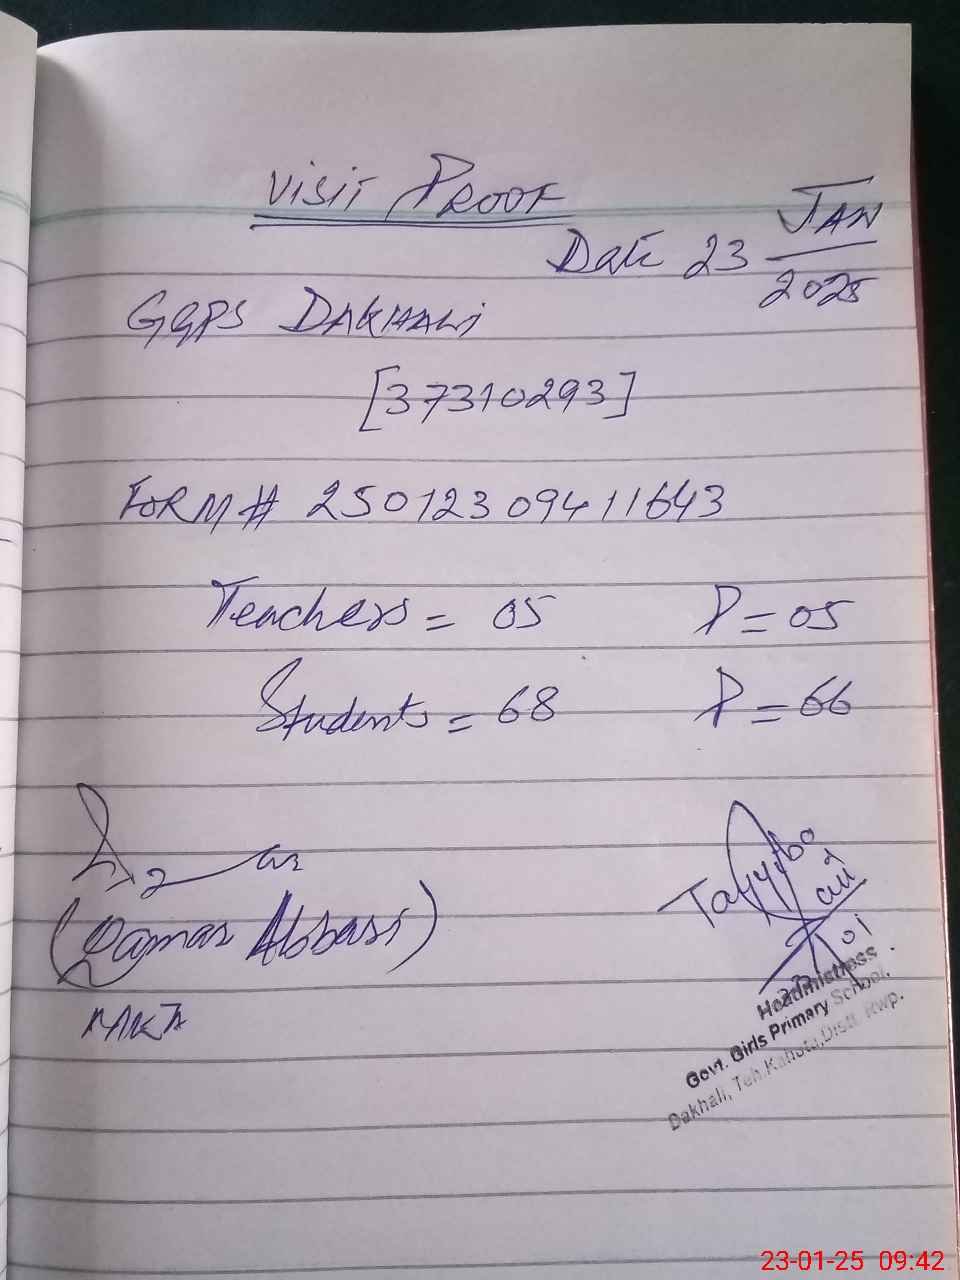 VISIT PROOF
Date 23 JAN
2025
GGPS DAKHALI
[37310293]
FORM# 25012309411643
Teachers = 05 P = 05
Students = 68 P = 66
(Qamar Abbasi)
Tayyiba
01
Headmistress
Govt. Girls Primary School,
Dakhali, Teh.Kahuta,Distt. Rwp.
23-01-25 09:42